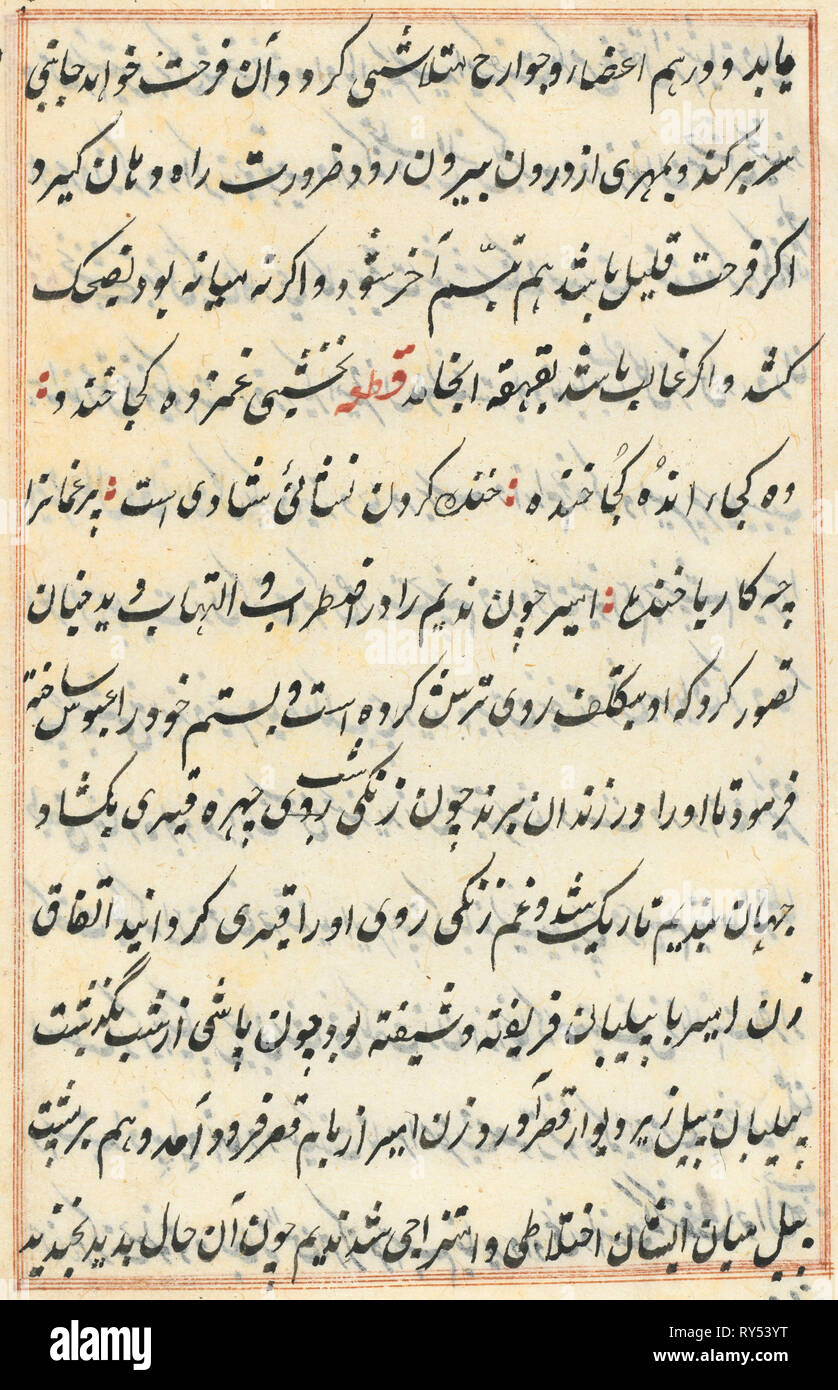 یابد و در هم اعضاء و جوارح متلاشی کردد و آن فرحت خواهد جائی
سر بر کند و بمهری از درون بیرون رود ضرورت راه دهان کیرد و
اکر فرحت قلیل باشد هم تبسّم آخر شود و اکر نه میانه بود بضحک
کشد و اکر غالب باشد بقهقهه انجامد قطعه نخشبی غمزده کجا خندد
وه کجا، اندُه کجُا خنده خنده کردن نشانئ شادی است پر غمانرا
چه کار با خنده امیر چون ندیم را در اضطراب و التهاب دید چنان
تصور کرد که او بتکلف روی ترش کرده است و بستم خود را عبوس ساخته
فرمود تا او را در زندان برند چون زنکی شب روی چهره قیری بکشاد
جهان بندیم تاریک شد و غم زنکی روی او را قیری کردانید اتفاق
زن امیر با پیلبان فریفته و شیفته بود چون پاسی از شب بگذشت
پیلبان پیل زیر دیوار قصر آورد و زن امیر از بام قصر فرود آمد و هم بر پشت
پیل میان ایشان اختلاطی و امتزاجی شد ندیم چون آن حال بدید بخندید
alamy
alamy
alamy
alamy
alamy
Image ID: RY53YT
www.alamy.com